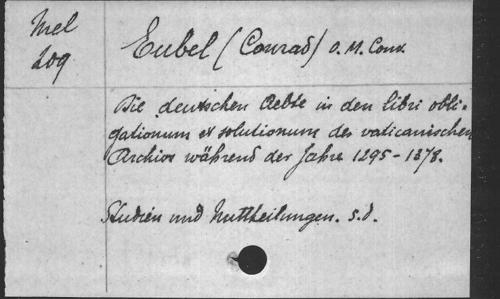 Mel
209
Eubel (Conrad) O. M. Conv.
Die deutschen Aebte in den libri obli-
gationum et solutionum des vaticanischen
Archivs während der Jahre 1295-1378.
Studien und Mittheilungen. s.d.